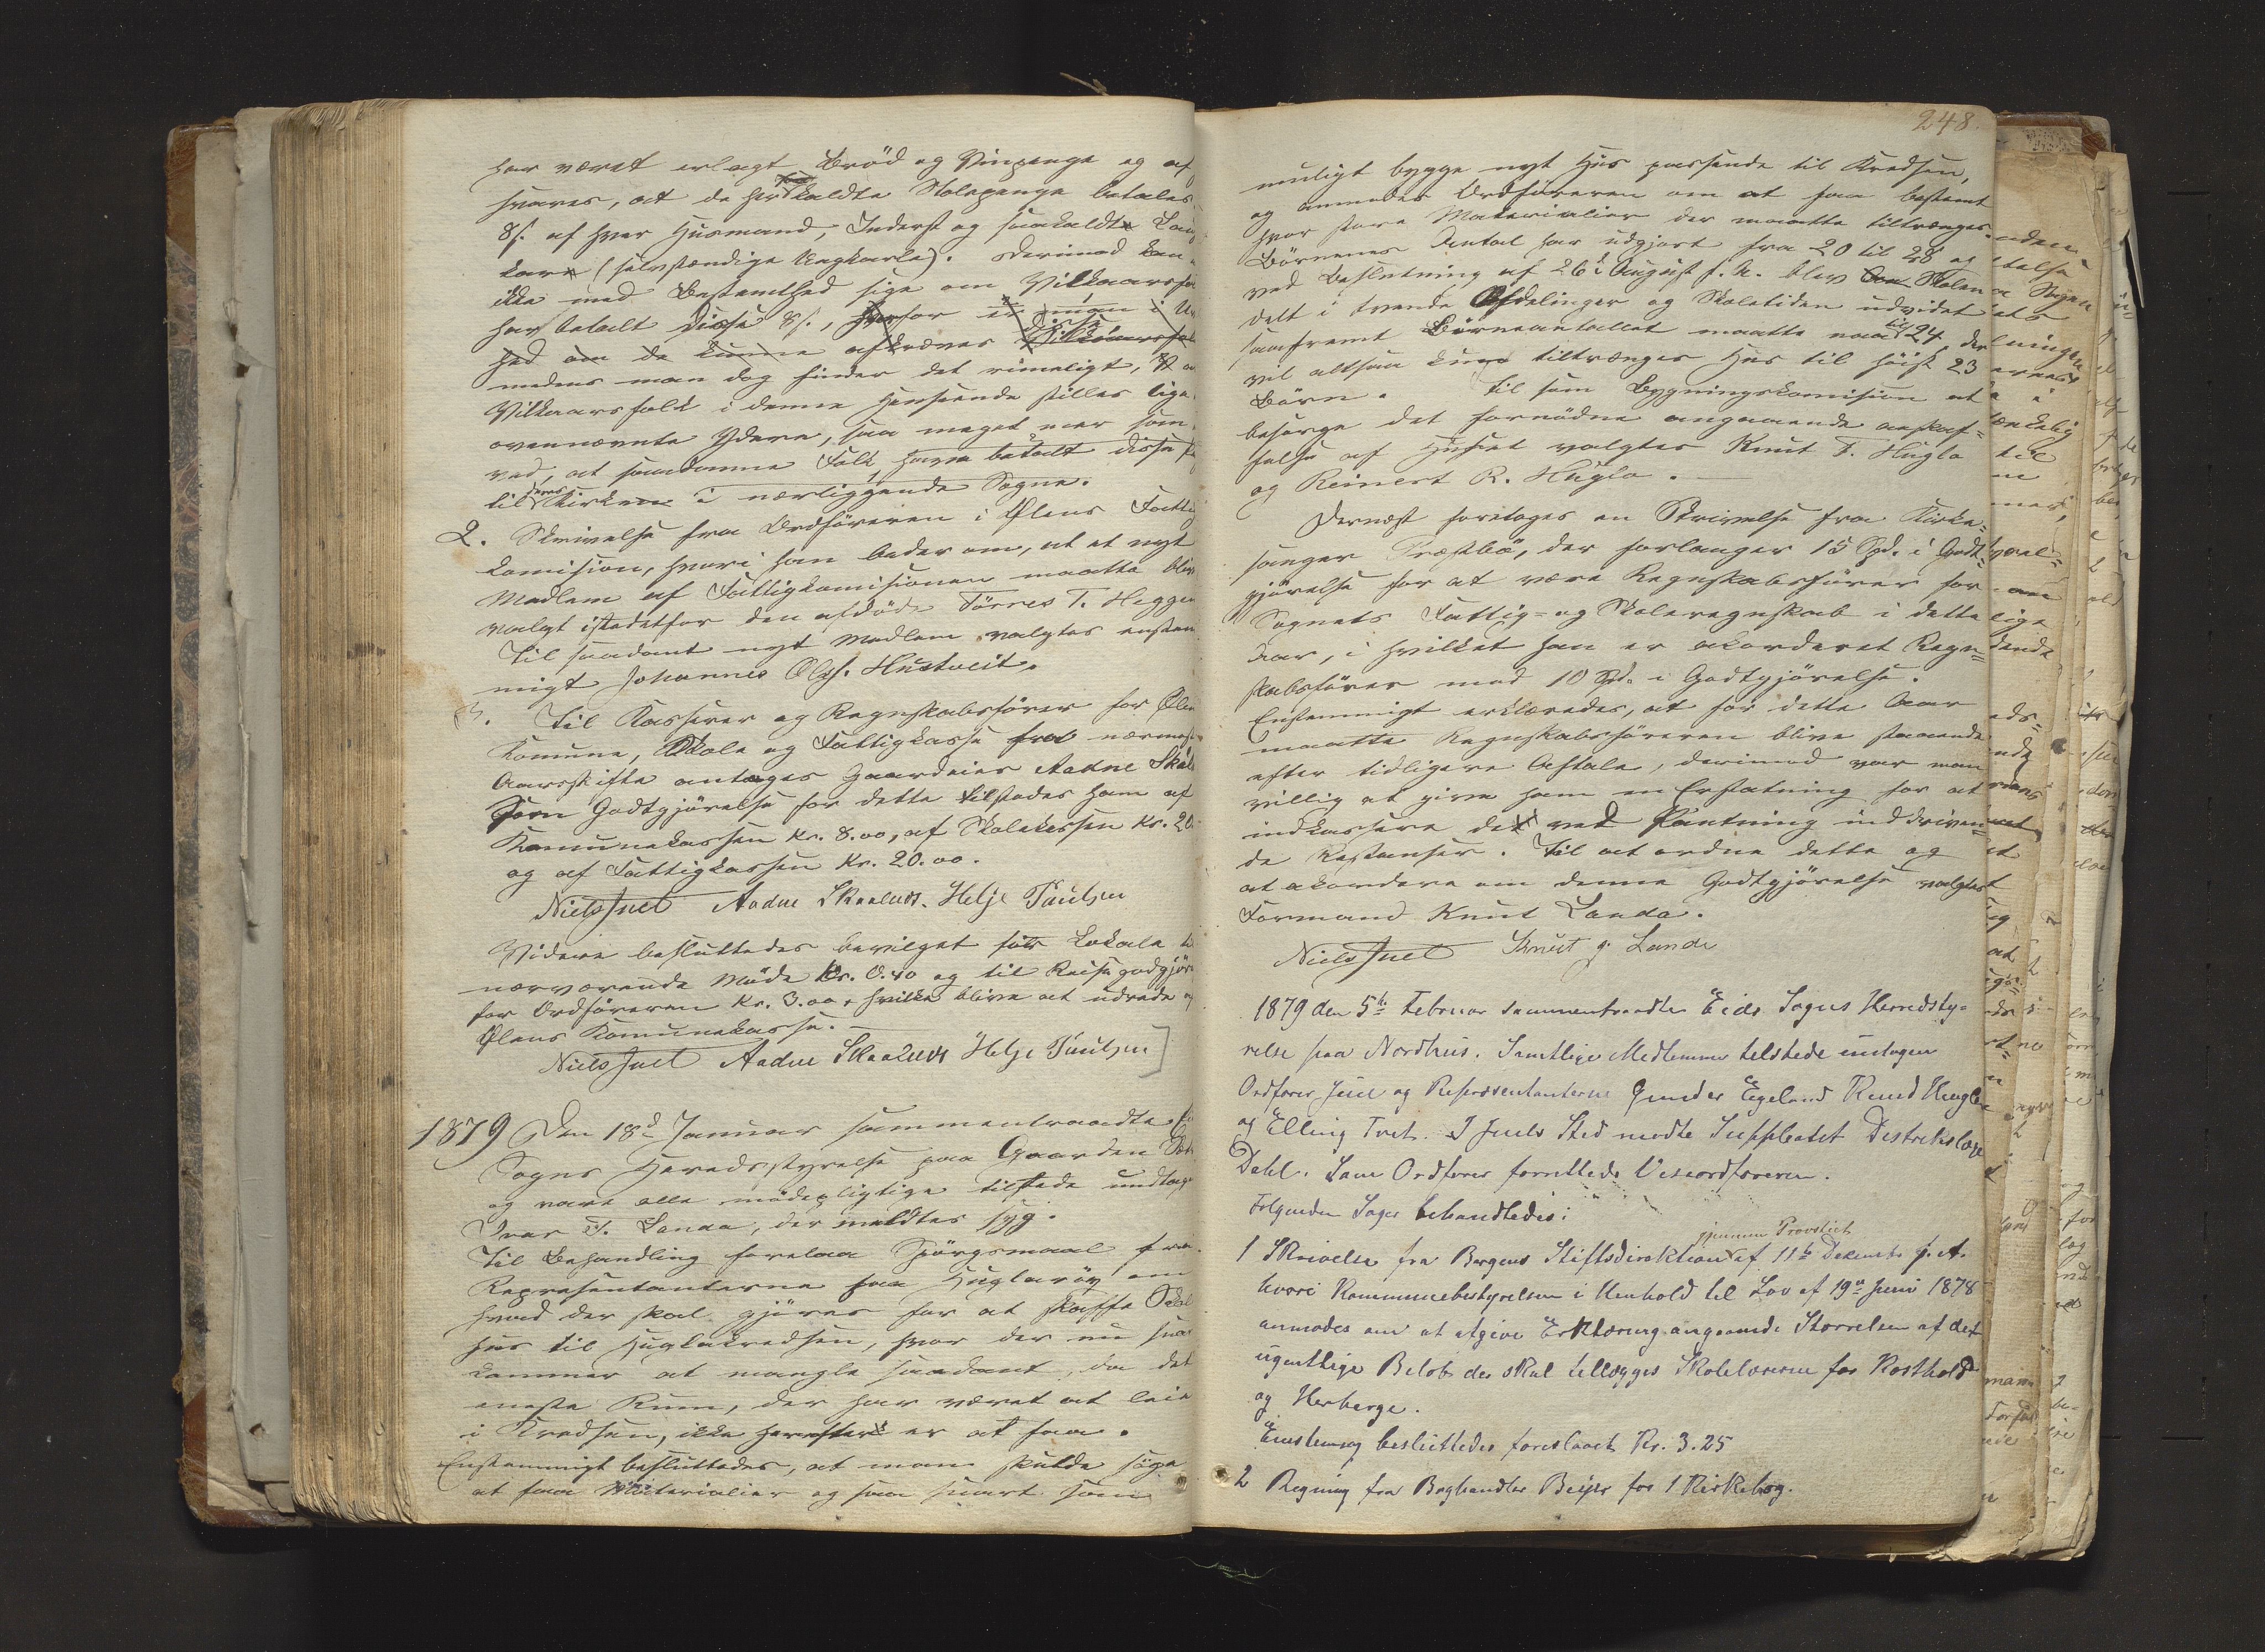 har været erlagt Brød og Vinpenge og af
svares, at de saakaldte Stolepenge betales
8 s. af hver Husmand, Inderst og saakaldte
karle (selvstændige Ungkarle). Derimod kan
ikke med Bestemthed sige om Vilkaarsfolk
har betalt disse 8 s., hvorfor er man i
hed om de kunne afkræves Vilkaarsfolk
medens man dog finder det rimeligt, at
Vilkaarsfolk i denne Henseende stilles lige
ovennævnte Ydere, saa meget mer som
ved, at saadanne Folk have betalt disse
til deres Kirker i nærliggende Sogne.
2. Skrivelse fra Ordføreren i Ølens Fattig
komision, hvori han beder om, at et nyt
Medlem af Fattigkomisionen maatte blive
valgt istedetfor den afdøde Tørres T. Heggen
Til saadant nyt Medlem valgtes enstem
migt Johannes Olss. Hustveit.
3. Til Kasserer og Regnskabsfører for Ølen
Komune, Skole og Fattigkasse fra nærmeste
Aarsskifte antages Gaardeier Aadne Skaal
Som Godtgjørelse for dette tilstades ham af
Komunekassen Kr. 8.00, af Skolekassen Kr. 20.
og af Fattigkassen Kr. 20.00.
Niels Juel Aadne Skaalues. Helje Paulsen
Videre besluttedes bevilget for Lokale til
nærværende Møde Kr. 0.40 og til Reisegodtgjør
for Ordføreren Kr. 3.00, hvilke blive at udrede af
Ølens Komunekasse.
Niels Juel Aadne Skaalues Helje Paulsen
1879 Den 18de Januar sammentraadte
Sogns Heredsstyrelse paa Gaarden
og vare alle mødepligtige tilstede undtagen
Ivar T. Landa, der meldtes syg.
Til Behandling forelaa Spørgsmaal fra
Repræsentanterne paa Huglaröy om
hvad der skal gjøres for at skaffe Skole
hus til Huglakredsen, hvor der nu
kommer at mangle saadant, da det
eneste Rum, der har været at leie
i Kredsen, ikke herefter er at faa.
Enstemmigt besluttedes, at man skulde søge
at faa Materialier og saa snart som
248.
muligt bygge nyt Hus passende til Kredsen,
og anmodes Ordføreren om at faa bestemt
hvor store Materialier der maatte tiltrænges.
Børnenes Antal har udgjort fra 20 til 28 og
ved Beslutning af 26de August f. A. blev Skolen
delt i tvende Afdelinger og Skoletiden udvidet
saafremt Børneantallet maatte naa til 24, der
vil altsaa kun tiltrænges Hus til høist 23
Børn. Til som Bygningskomision at
besørge det fornødne angaaende anskaf=
felse af Huset valgtes Knut T. Hugla
og Reinert R. Hugla.
Dernæst foretoges en Skrivelse fra Kirke=
sanger Præstbø, der forlanger 15 Spd. i Godt=
gjørelse for at være Regnskabsfører for
Sognets Fattig= og Skoleregnskab i dette
Aar, i hvilket han er akorderet Regn=
skabsfører med 10 Spd. i Godtgjørelse.
Enstemmigt erklæredes, at for dette Aar
maatte Regnskabsføreren blive staaende
efter tidligere Aftale, derimod var man
villig at give ham en Erstatning for at
indkassere de ved Pantning inddriven=
de Restanser. Til at ordne dette og
at akordere om denne Godtgjørelse valgtes
Formand Knut Landa.
Niels Juel Knut J. Lande
1879 den 5te Februar sammentraadte Eids Sogns Herredsty=
relse paa Nordhus. Samtlige Medlemmer tilstede undtagen
Ordfører Juel og Repræsentanterne Gunder Eegeland Knud Hugle
og Elling Tvet. I Juels Sted mødte Suppleatet Destrikslæge
Dahl. Som Ordfører forrettede Viseordføreren.
Følgende Sager behandledes:
gjennem Provstiet
1 Skrivelse fra Bergens Stiftsdirektion af 11te Desember f. A.
hvori Kommunebestyrelsen i Henhold til Lov af 19de Juni 1878
anmodes om at afgive Erklæring angaaende Størrelsen af det
ugentlige Beløb der skal tillægges Skolelærerne for Kosthold
og Herberge.
Enstemmig besluttedes foreslaaet Kr. 3.25
2 Regning fra Boghandler Beijer for 1 Kirkebog.